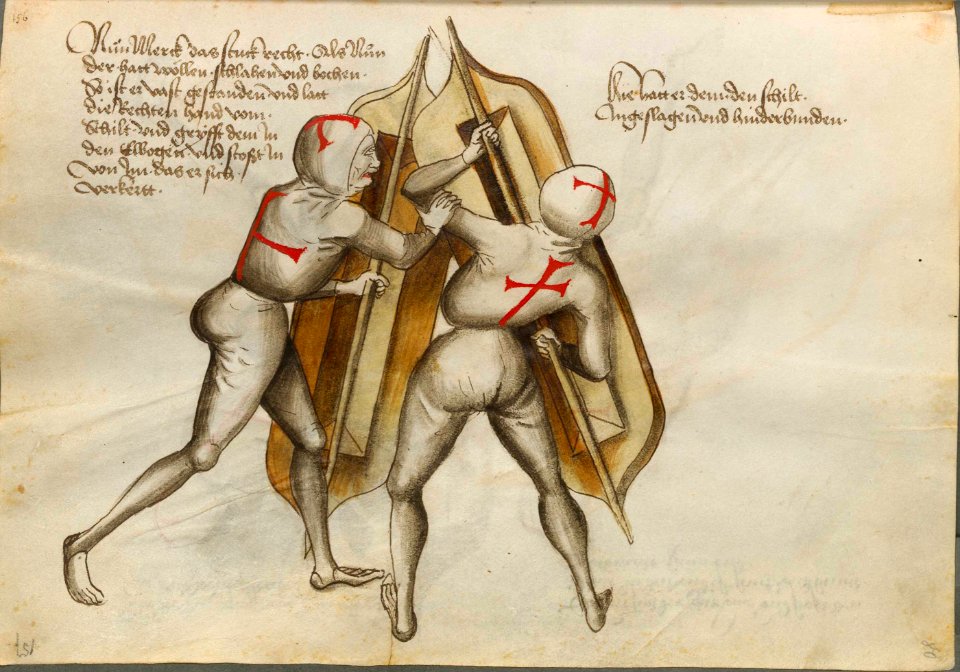 156
Nun Merck das stuck recht. Als Nun
der hatt wöllen schlahen und bochen.
So ist er vast gestanden und latt
die Rechten hand vom.
Schilt und gryfft dem In
den Elbogen. und stoßt In
von Im das er sich.
verkertt.
Hie hatt er dem den schilt.
Angeslagen und hinderbunden.